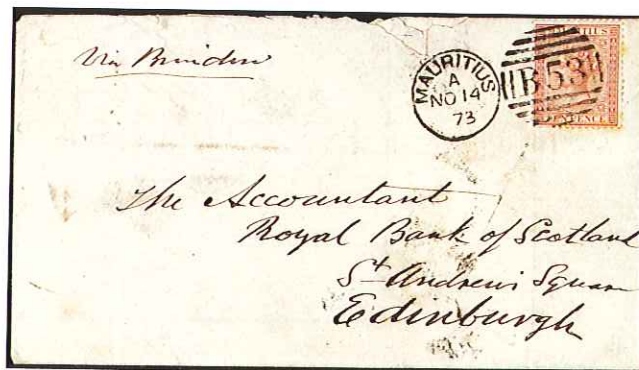 Via Brindisi
MAURITIUS
A
NO 14
73
MAURITIUS
B53
PENCE
The Accountant
Royal Bank of Scotland
St Andrews Square
Edinburgh